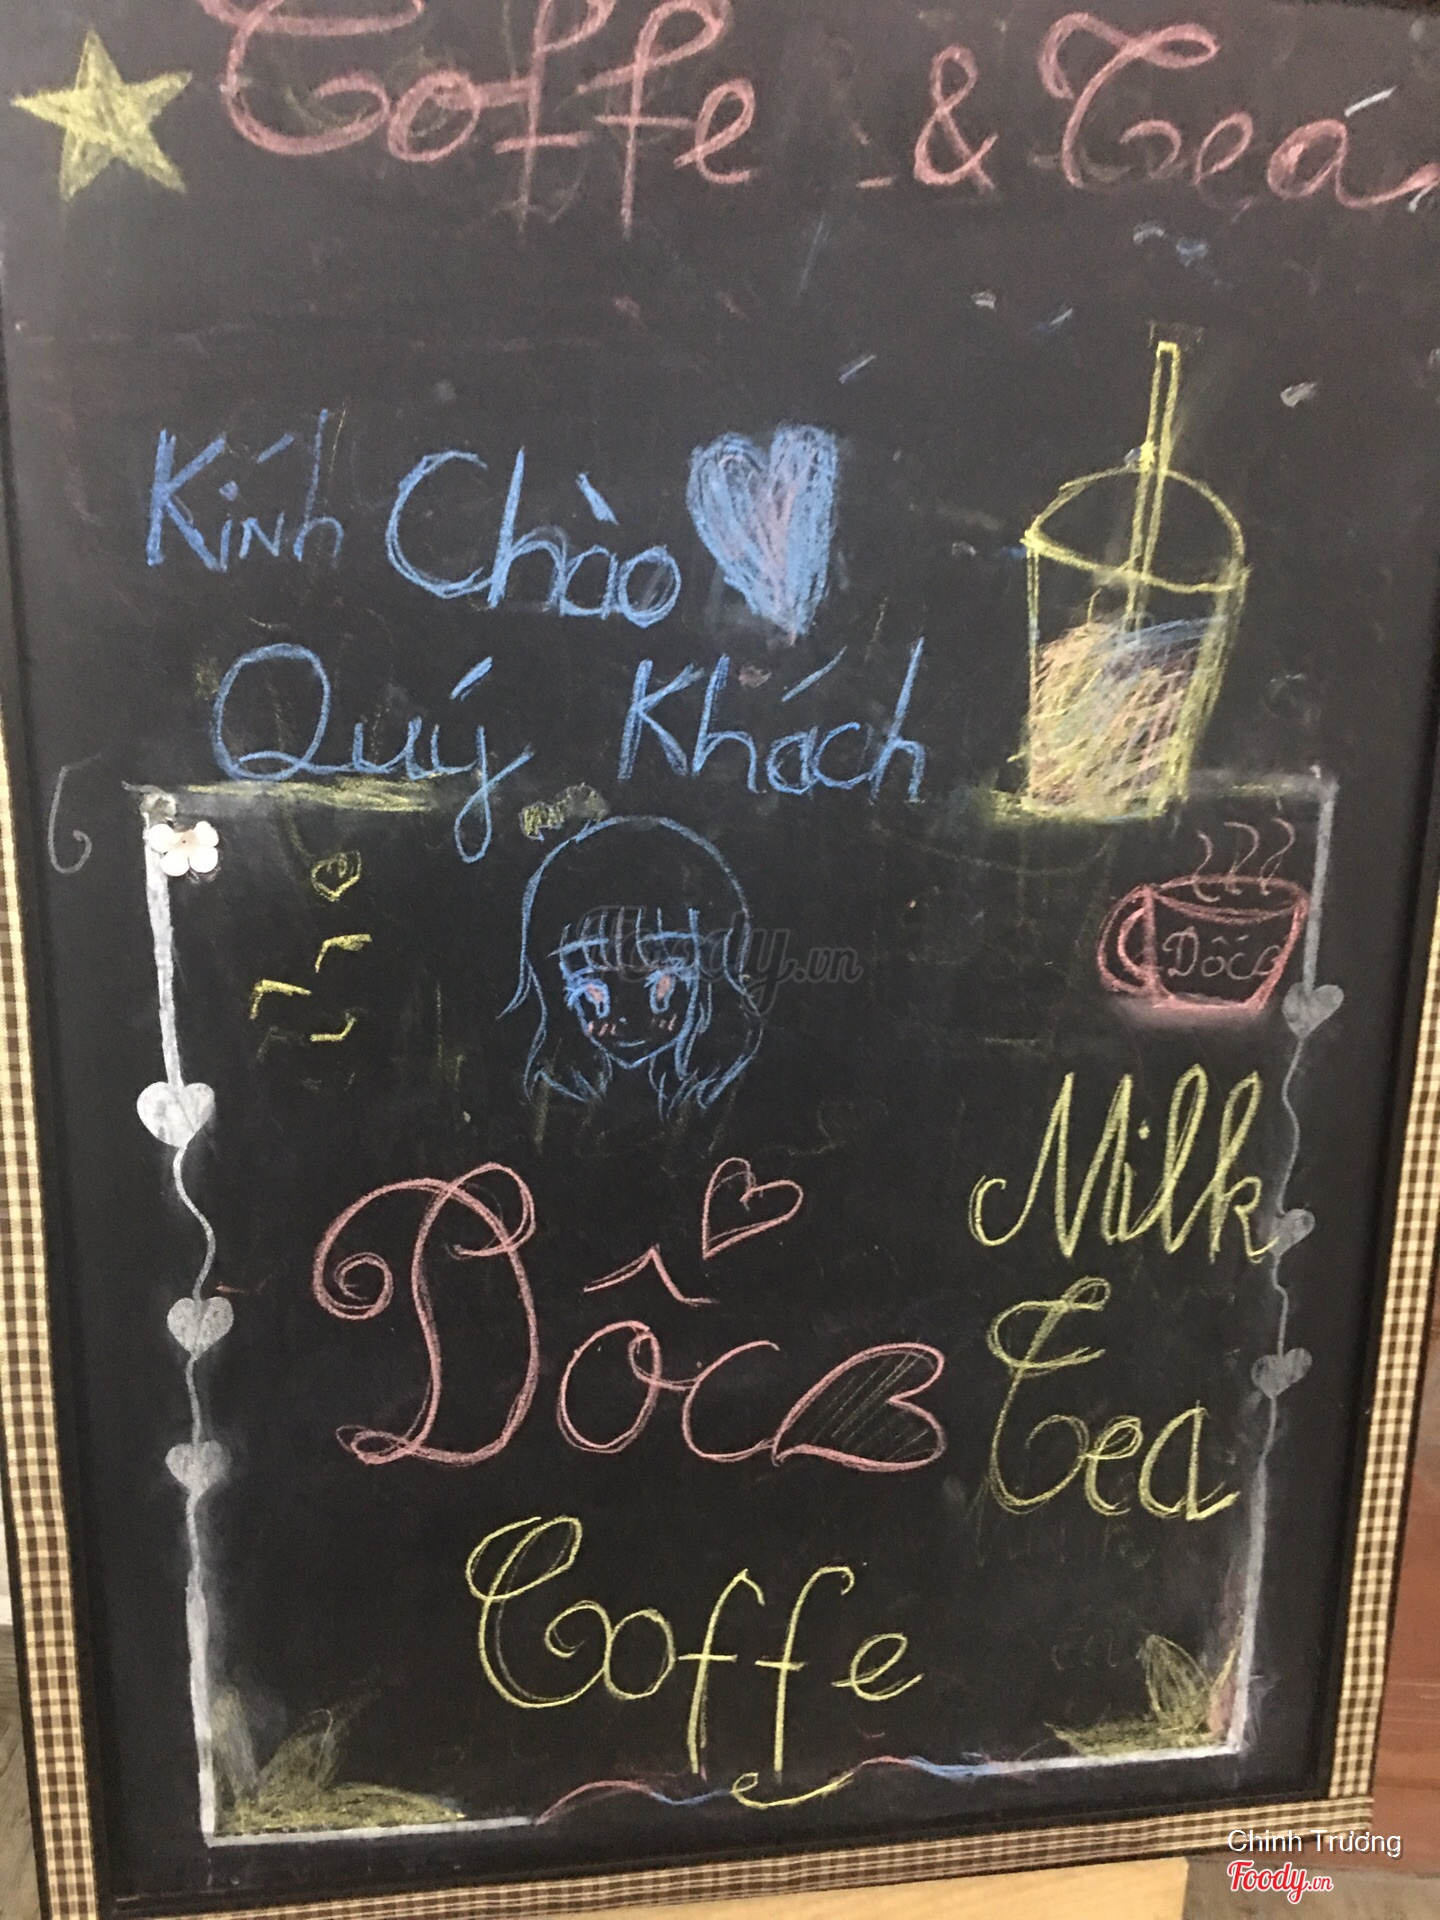 Coffe & Teá
Kính Chào
Quý Khách
Dốc
Milk
Dốc
Tea
Coffe
Foody.vn
Chinh Trương
Foody.vn